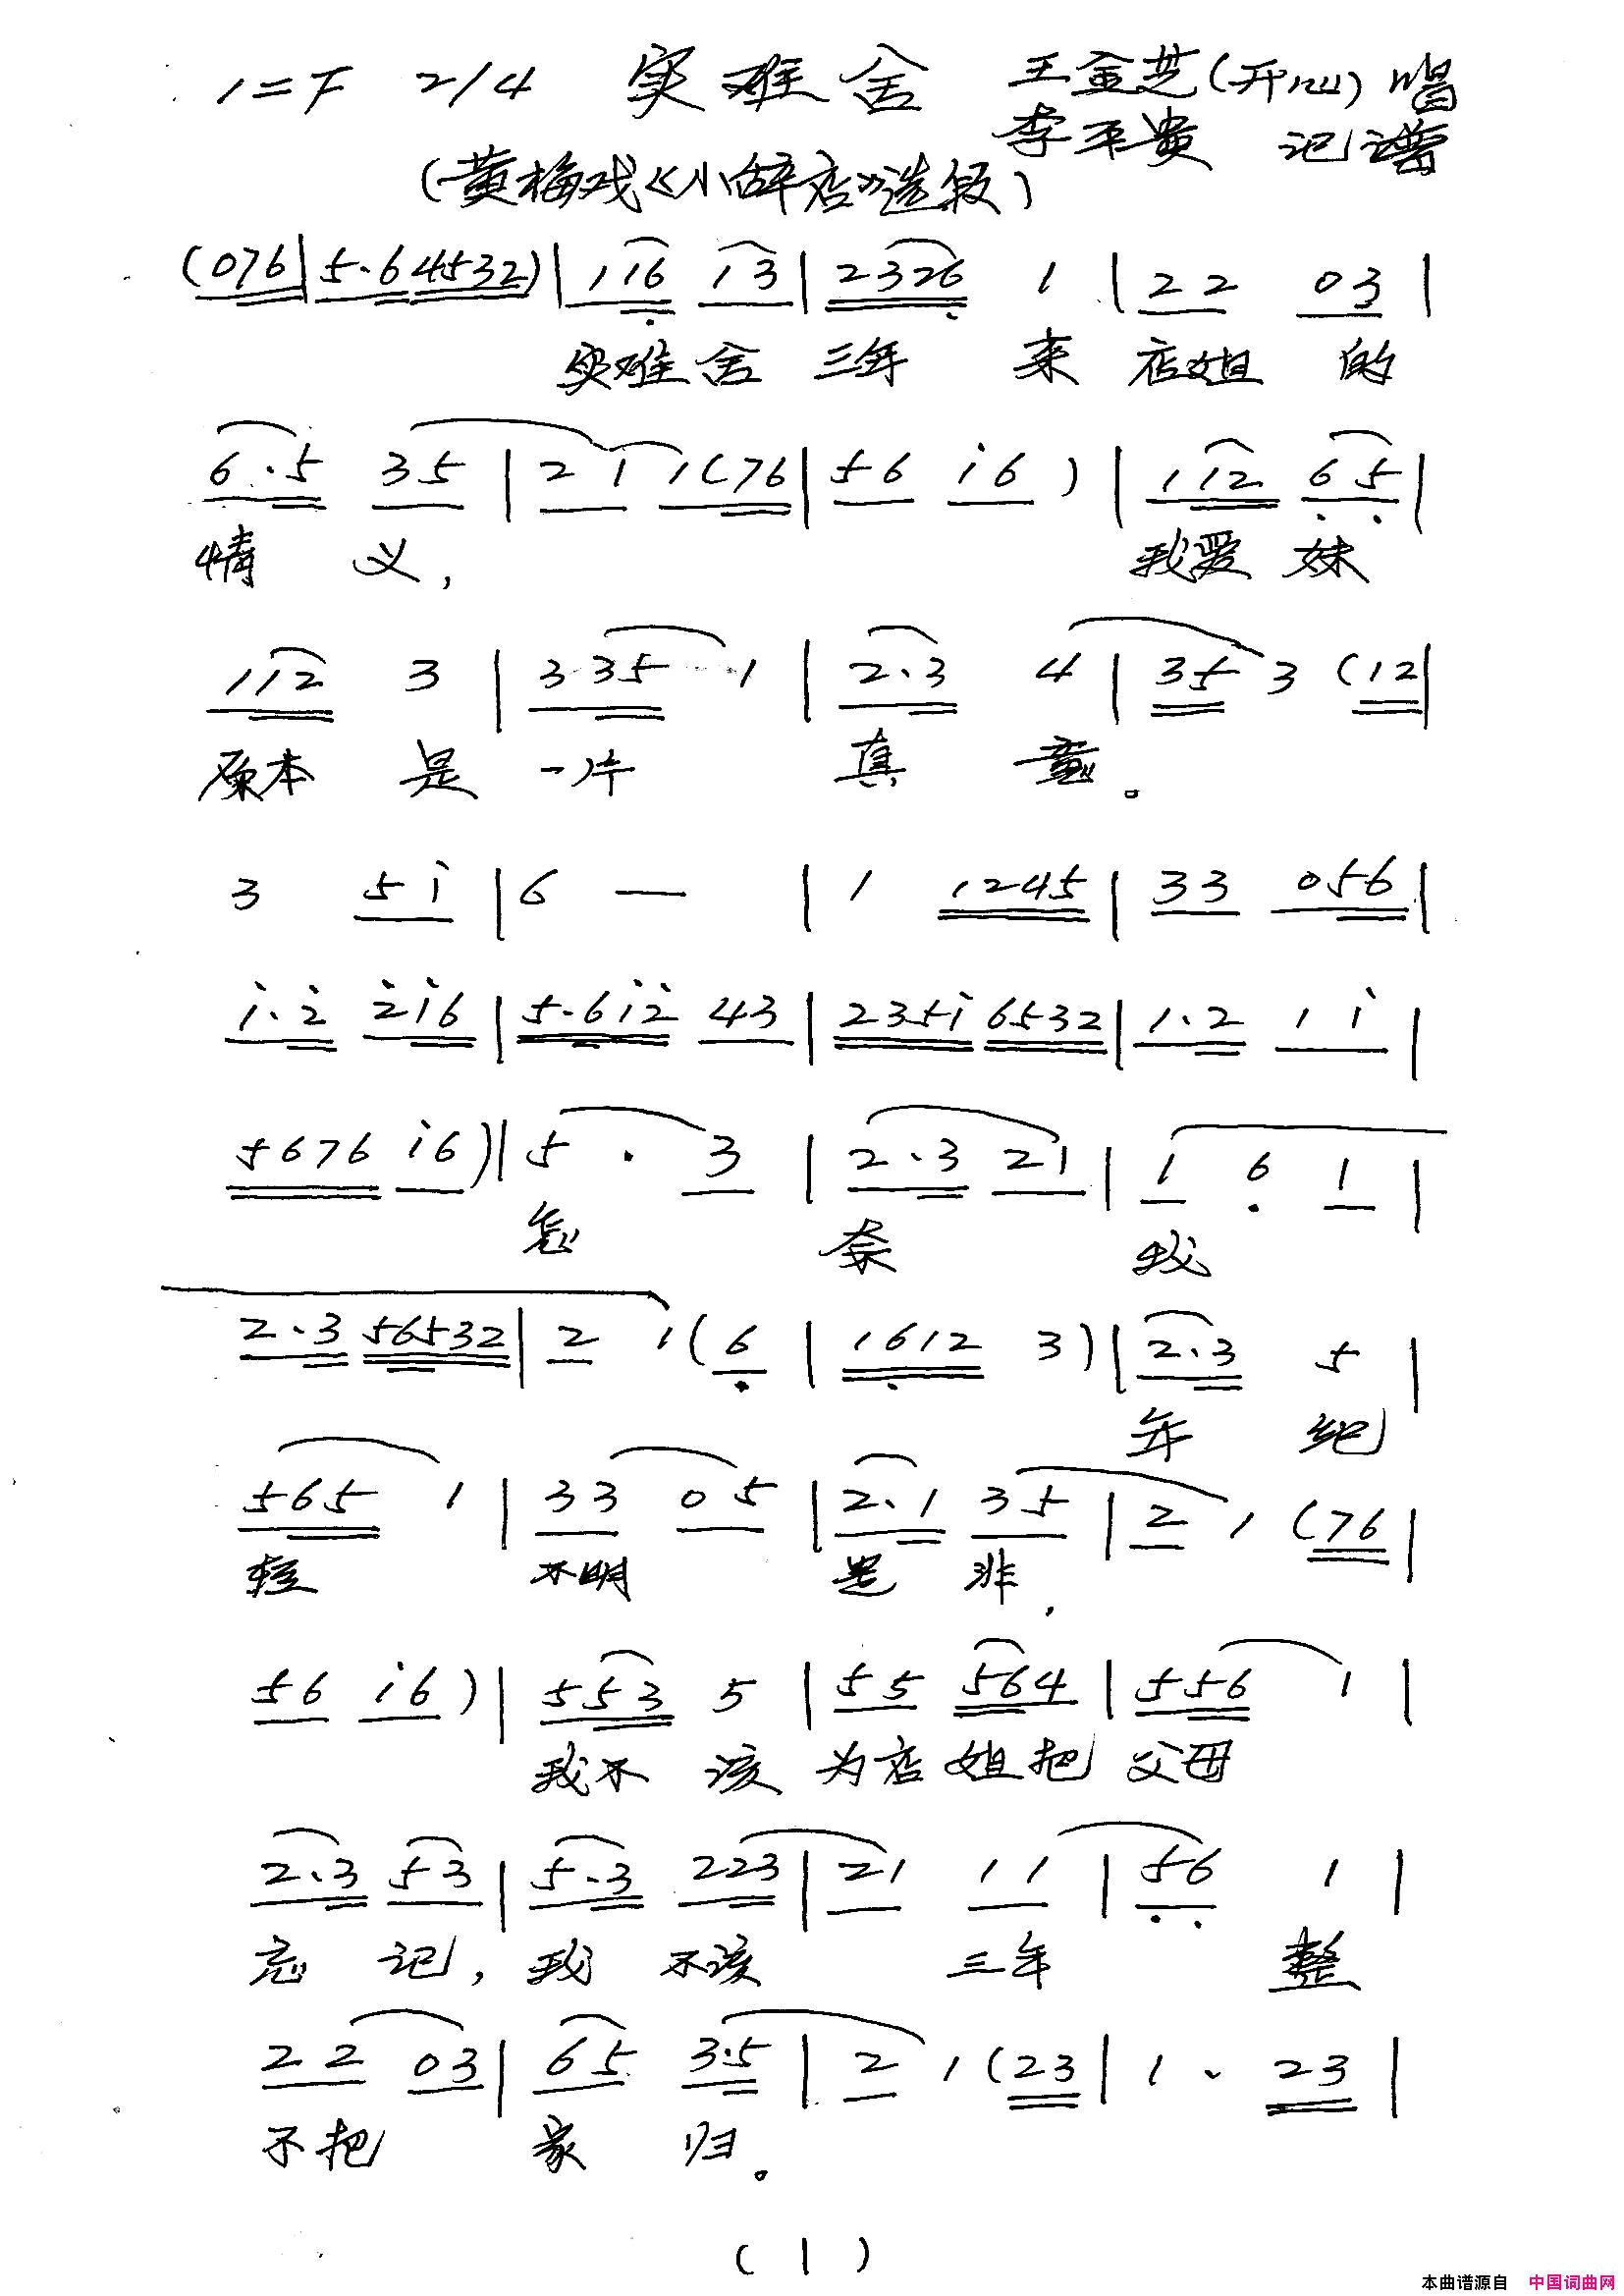 1=F 2/4 实难舍 王金芝(开心)唱
李平贵 记谱
(黄梅戏《小辞店》选段)
(076|5.64532)|1i6 13|2326 1|22 03|
实难舍 三年 来 店姐 的
6.5 35|21 1(76|56 i6)|112 65|
情 义, 我爱 妹
112 3|335 1|2.3 4|35 3 (12|
原本 是 一片 真 意。
3 5i|6 —|1 1245|33 056|
i.2 2i6|5.6i2 43|235i 6532|1.2 1i|
5676 i6)|5.3|2.3 21|1 6 1|
怎 奈 我
2.3 56532|2 1(6|1612 3)|2.3 5|
年 纪
565 1|33 05|2.1 35|2 1 (76|
轻 不明 是 非,
56 i6)|553 5|55 564|556 1|
我不 该 为店 姐把 父母
2.3 53|5.3 223|21 11|56 1|
忘 记, 我 不该 三年 整
22 03|65 3.5|2 1(23|1. 23|
不把 家 归。
(1)
本曲谱源自 中国词曲网